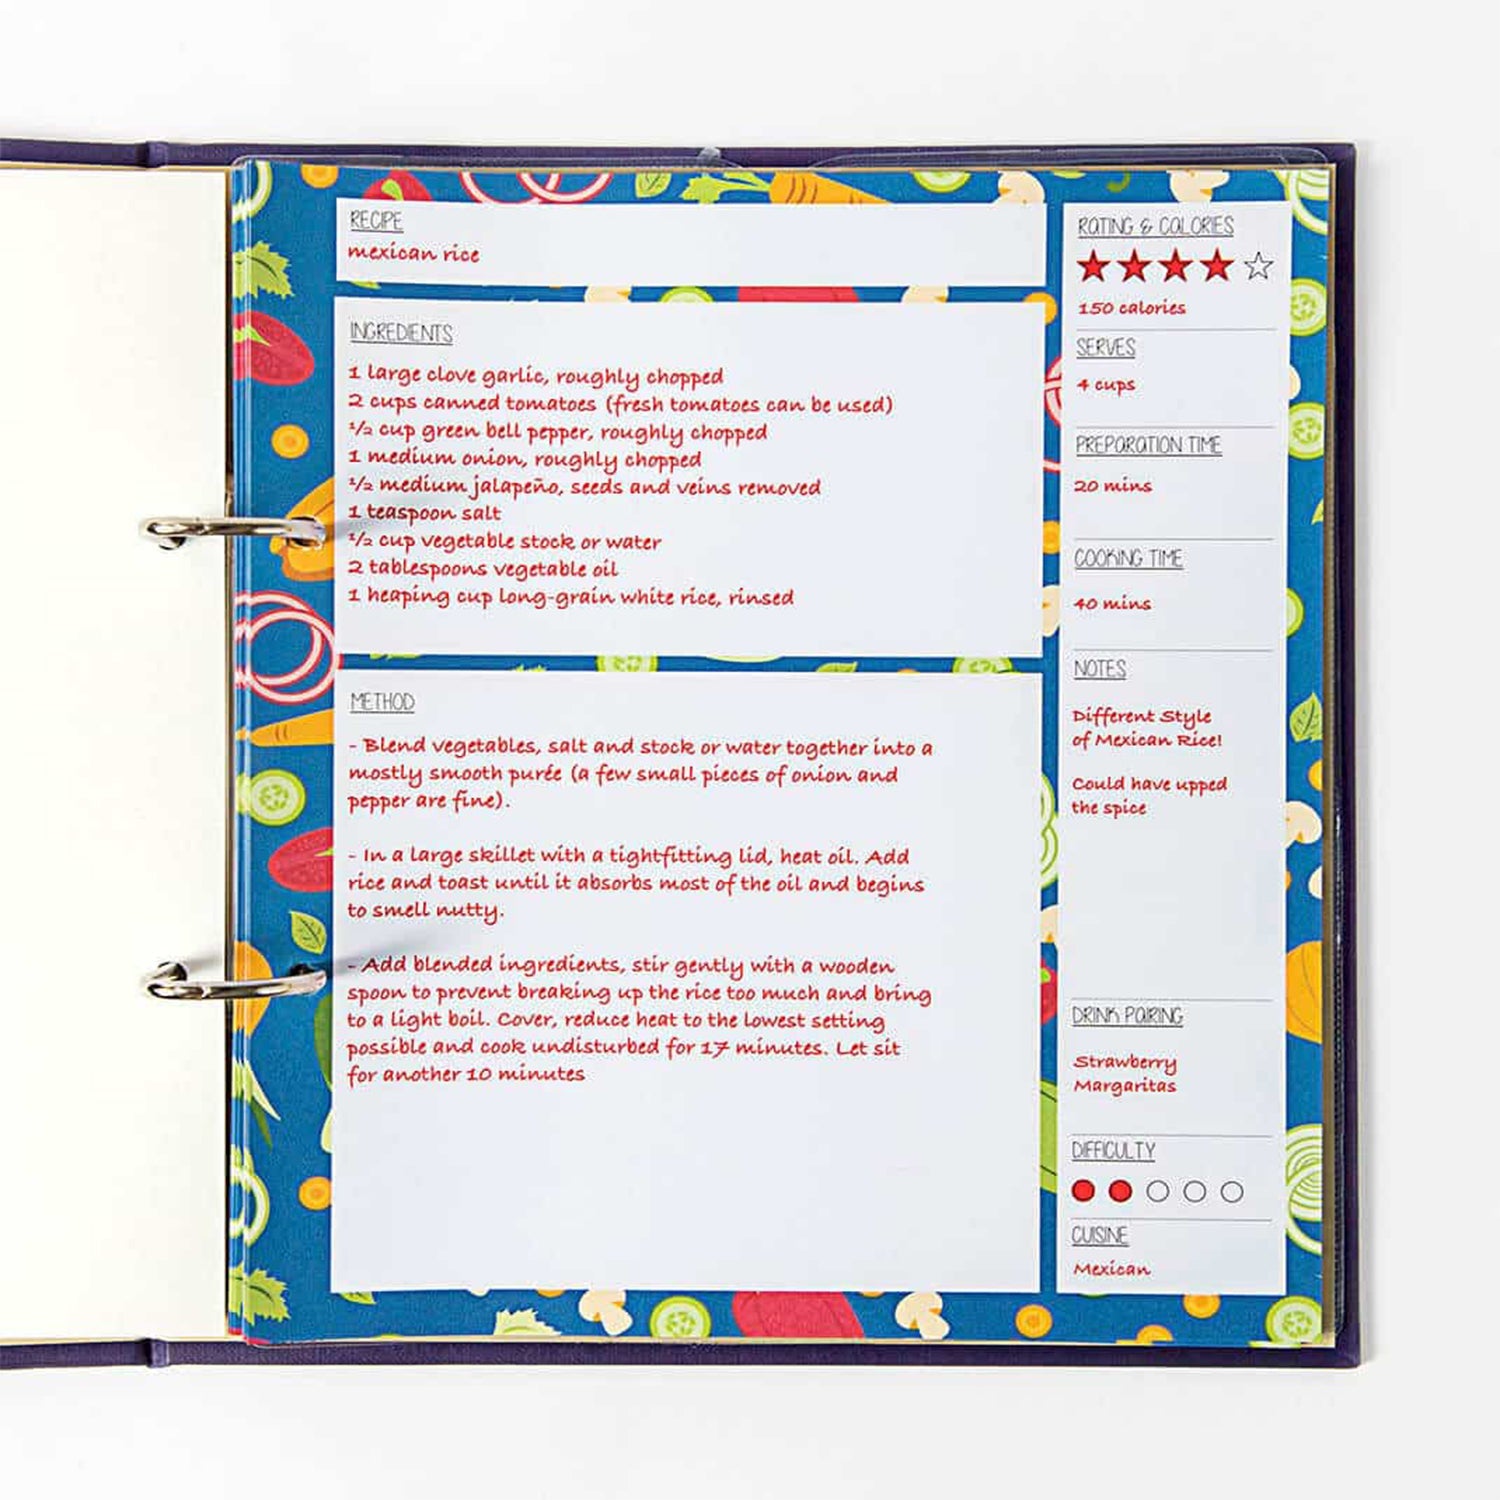 RECIPE
mexican rice
INGREDIENTS
1 large clove garlic, roughly chopped
2 cups canned tomatoes (fresh tomatoes can be used)
½ cup green bell pepper, roughly chopped
1 medium onion, roughly chopped
½ medium jalapeño, seeds and veins removed
1 teaspoon salt
½ cup vegetable stock or water
2 tablespoons vegetable oil
1 heaping cup long-grain white rice, rinsed
METHOD
- Blend vegetables, salt and stock or water together into a
mostly smooth purée (a few small pieces of onion and
pepper are fine).
- In a large skillet with a tightfitting lid, heat oil. Add
rice and toast until it absorbs most of the oil and begins
to smell nutty.
- Add blended ingredients, stir gently with a wooden
spoon to prevent breaking up the rice too much and bring
to a light boil. Cover, reduce heat to the lowest setting
possible and cook undisturbed for 17 minutes. Let sit
for another 10 minutes
RATING & CALORIES
150 calories
SERVES
4 cups
PREPARATION TIME
20 mins
COOKING TIME
40 mins
NOTES
Different Style
of Mexican Rice!
Could have upped
the spice
DRINK PAIRING
Strawberry
Margaritas
DIFFICULTY
CUISINE
Mexican